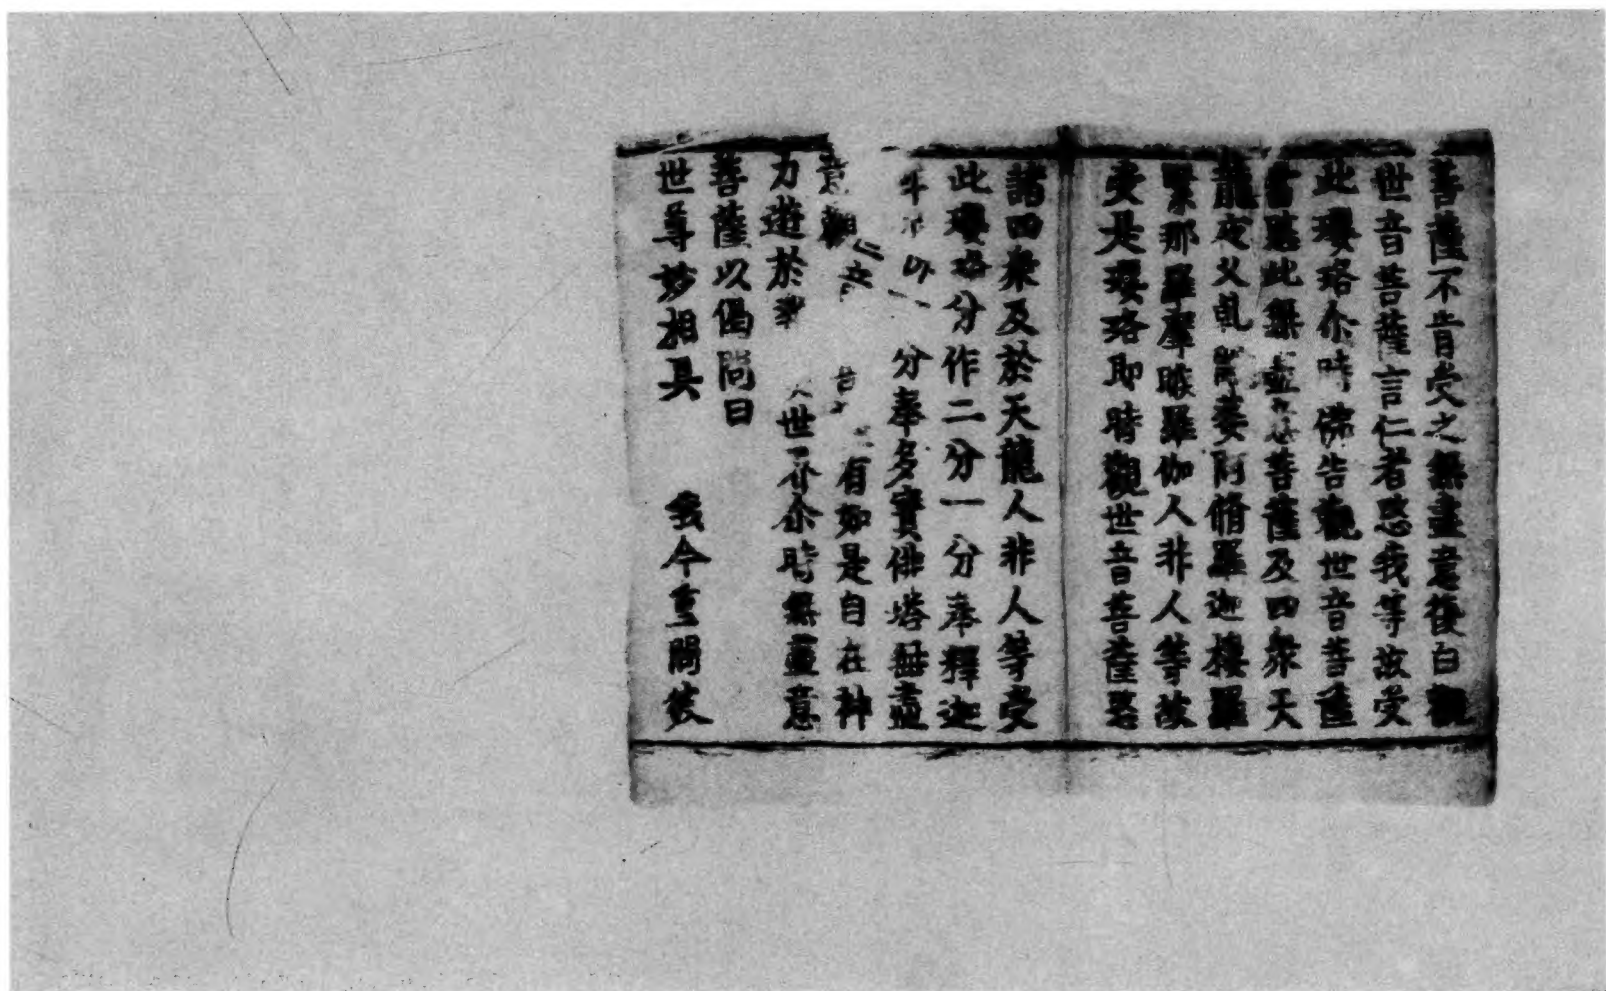 菩薩不肯受之無盡意復白觀
世音菩薩言仁者愍我等故受
此瓔珞尒時佛告觀世音菩薩
當愍此無盡意菩薩及四衆天
龍夜乂乹闥婆阿脩羅迦樓羅
緊那羅摩睺羅伽人非人等故
受是瓔珞即時觀世音菩薩愍
諸四衆及於天龍人非人等受
此瓔珞分作二分一分奉釋迦
牟尼 分奉多寳佛塔無盡
意觀 有如是自在神
力遊於 世 尒時無盡意
菩薩以偈問曰
世尊妙相具 我今重問彼